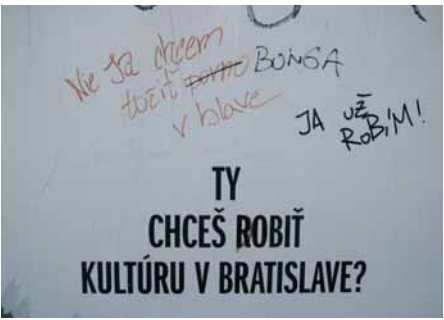 Nie Ja chcem
točiť porno BONGA
v blave
JA UŽ
ROBÍM!
TY
CHCEŠ ROBIŤ
KULTÚRU V BRATISLAVE?